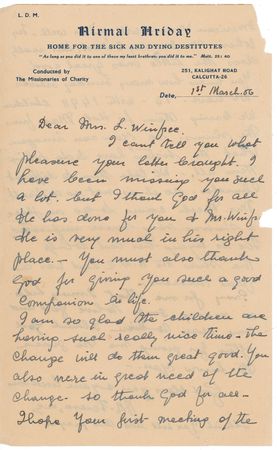 L. D. M.
Nirmal Hriday
HOME FOR THE SICK AND DYING DESTITUTES
"As long as you did it to one of these my least brethren, you did it to me." Matt. 25: 40
Conducted by
The Missionaries of Charity
251, KALIGHAT ROAD
CALCUTTA-26
Date, 1st March. 66
Dear Mrs. L. Winfree.
I can't tell you what
pleasure your letter brought. I
have been missing you such
a lot. but I thank God for all
He has done for you & Mr. Winfree
He is very much in his right
place. — You must also thank
God for giving you such a good
Companion for life.
I am so glad the children are
having such really nice time. The
change will do them great good. You
also were in great need of the
change. so thank God for all —
I hope your first meeting of the